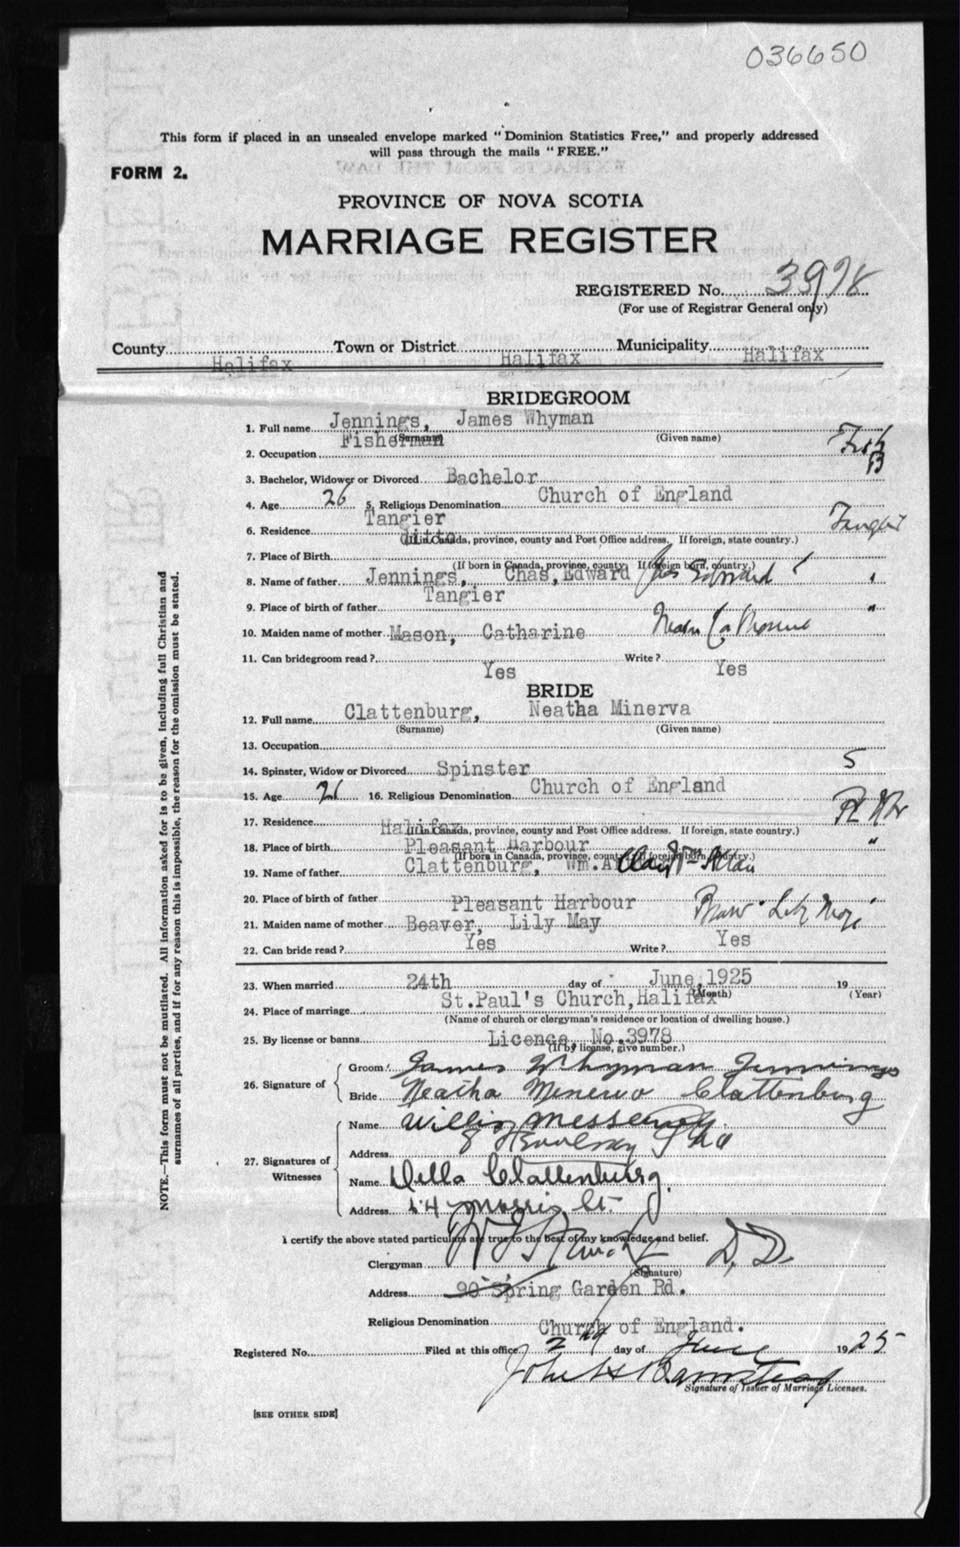 036650
This form if placed in an unsealed envelope marked "Dominion Statistics Free," and properly addressed
will pass through the mails "FREE."
FORM 2.
PROVINCE OF NOVA SCOTIA
MARRIAGE REGISTER
REGISTERED No. 3978
(For use of Registrar General only)
County Halifax Town or District Halifax Municipality Halifax
BRIDEGROOM
1. Full name Jennings, James Whyman
(Surname) (Given name)
2. Occupation Fisherman
3. Bachelor, Widower or Divorced Bachelor B
4. Age 26 5. Religious Denomination Church of England
6. Residence Tangier Tangier
(If in Canada, province, county and Post Office address. If foreign, state country.)
7. Place of Birth ditto
(If born in Canada, province, county. If foreign born, country.)
8. Name of father Jennings, Chas, Edward Chas Edward "
9. Place of birth of father Tangier "
10. Maiden name of mother Mason, Catharine
11. Can bridegroom read? Yes Write? Yes
BRIDE
12. Full name Clattenburg, Neatha Minerva
(Surname) (Given name)
13. Occupation
14. Spinster, Widow or Divorced Spinster S
15. Age 21 16. Religious Denomination Church of England
17. Residence Halifax
(If in Canada, province, county and Post Office address. If foreign, state country.)
18. Place of birth Pleasant Harbour "
(If born in Canada, province, county. If foreign born, country.)
19. Name of father Clattenburg, Wm. Allan
20. Place of birth of father Pleasant Harbour
21. Maiden name of mother Beaver, Lily May Beaver Lily May
22. Can bride read? Yes Write? Yes
23. When married 24th day of June, 1925 19
(Month) (Year)
24. Place of marriage St.Paul's Church,Halifax
(Name of church or clergyman's residence or location of dwelling house.)
25. By license or banns Licence, No.3978
(If by license, give number.)
26. Signature of Groom James Whyman Jennings
Bride Neatha Minerva Clattenburg
27. Signatures of Witnesses Name
Address
Name Della Clattenburg
Address 54 Morris St.
I certify the above stated particulars are true to the best of my knowledge and belief.
Clergyman D.D.
(Signature)
Address 90 Spring Garden Rd.
Religious Denomination Church of England.
Registered No. Filed at this office 2 day of June 1925
John H Barnstead
Signature of Issuer of Marriage Licenses.
[SEE OTHER SIDE]
NOTE.—This form must not be mutilated. All information asked for is to be given, including full Christian and
surnames of all parties, and if for any reason this is impossible, the reason for the omission must be stated.